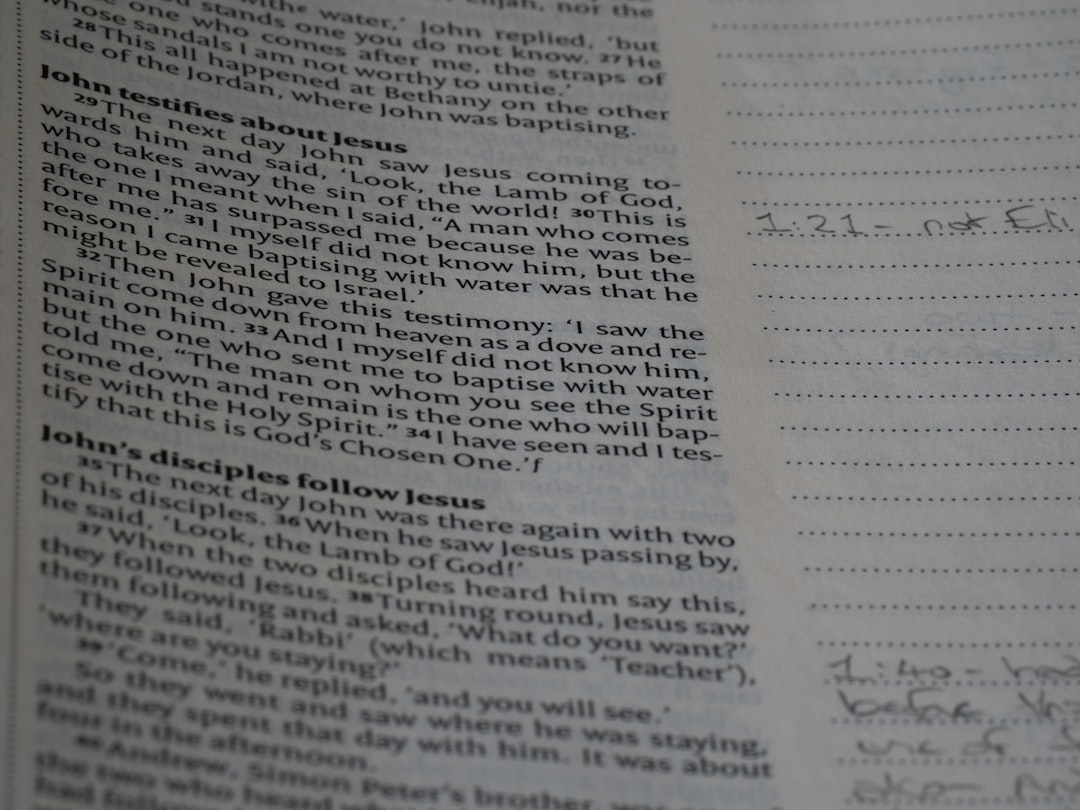 nor the
with water,' John replied, 'but
stands one you do not know. 27 He
one who comes after me, the straps of
whose sandals I am not worthy to untie.'
28 This all happened at Bethany on the other
side of the Jordan, where John was baptising.
John testifies about Jesus
29 The next day John saw Jesus coming to-
wards him and said, 'Look, the Lamb of God,
who takes away the sin of the world! 30 This is
the one I meant when I said, "A man who comes
after me has surpassed me because he was be-
fore me." 31 I myself did not know him, but the
reason I came baptising with water was that he
might be revealed to Israel.'
32 Then John gave this testimony: 'I saw the
Spirit come down from heaven as a dove and re-
main on him. 33 And I myself did not know him,
but the one who sent me to baptise with water
told me, "The man on whom you see the Spirit
come down and remain is the one who will bap-
tise with the Holy Spirit." 34 I have seen and I tes-
tify that this is God's Chosen One.' f
John's disciples follow Jesus
35 The next day John was there again with two
of his disciples. 36 When he saw Jesus passing by,
he said, 'Look, the Lamb of God!'
37 When the two disciples heard him say this,
they followed Jesus. 38 Turning round, Jesus saw
them following and asked, 'What do you want?'
They said, 'Rabbi' (which means 'Teacher'),
'where are you staying?'
39 'Come,' he replied, 'and you will see.'
So they went and saw where he was staying,
and they spent that day with him. It was about
four in the afternoon.
40 Andrew, Simon Peter's brother, was one of
the two who heard
had follow
1:21- not Eli
1:40- had
before
use of
also- And